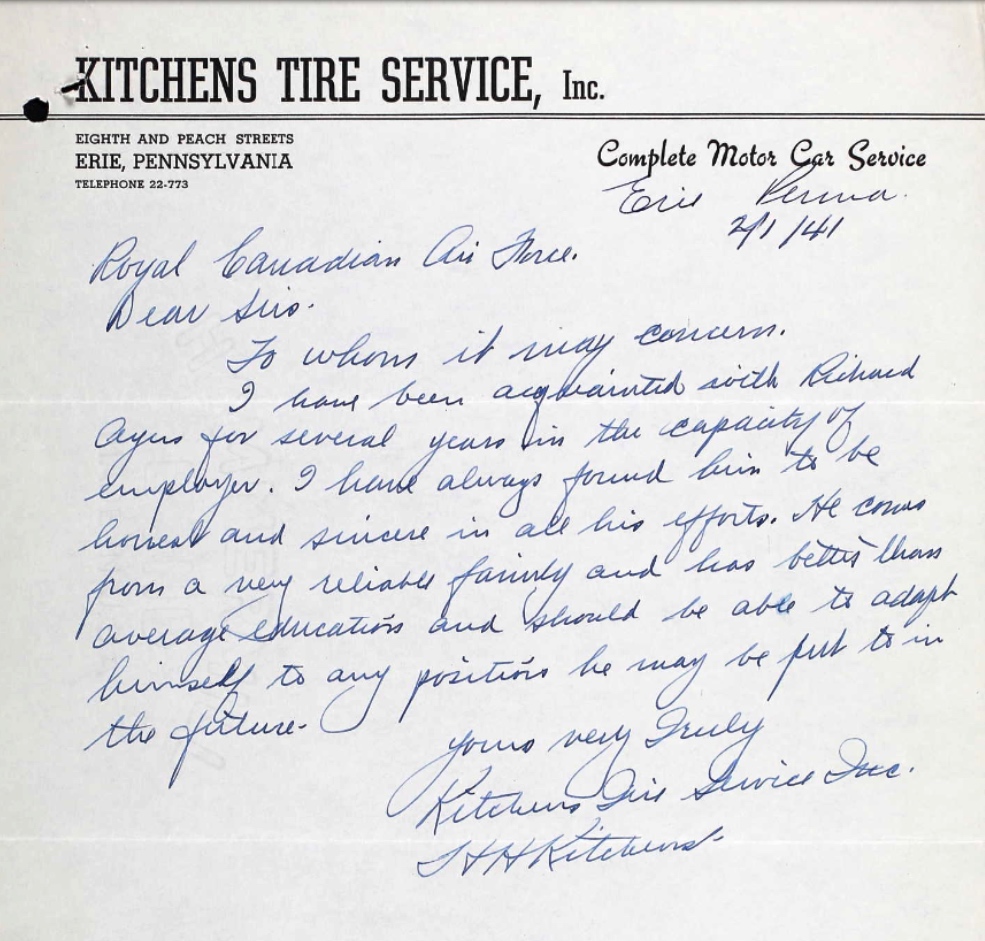 KITCHENS TIRE SERVICE, Inc.
EIGHTH AND PEACH STREETS
ERIE, PENNSYLVANIA
TELEPHONE 22-773
Complete Motor Car Service
Erie Penna.
2/1/41
Royal Canadian Air Force.
Dear Sirs.
To whom it may concern.
I have been acquainted with Richard
Ayers for several years in the capacity of
employer. I have always found him to be
honest and sincere in all his efforts. He comes
from a very reliable family and has better than
average education and should be able to adapt
himself to any position he may be put to in
the future.
Yours very Truly
Kitchens Tire Service Inc.
Kitchens